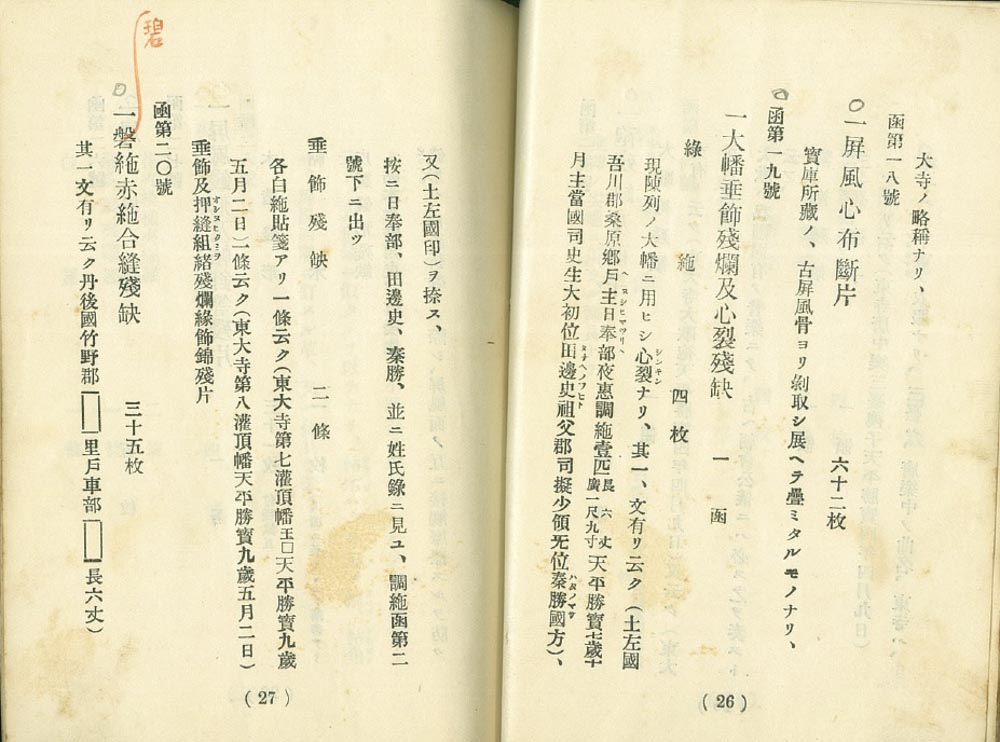 大寺ノ略稱ナリ、
函第一八號
〇一屏風心布斷片　六十二枚
寶庫所藏ノ、古屏風骨ヨリ剝取シ展ヘテ疊ミタルモノナリ、
函第一九號
一大幡垂飾殘爛及心裂殘缺　一函
綠絁　四枚
現陳列ノ大幡ニ用ヒシ心裂ナリ、其一、文有リ云ク（土左國
シンキレ
吾川郡桑原鄕戶主日奉部夜惠調絁壹匹長六丈廣一尺九寸天平勝寶七歲十
月主當國司史生大初位田邊史祖父郡司擬少領无位秦勝國方）、
タナヘノフヒト
(26)
又（土左國印）ヲ捺ス、
按ニ日奉部、田邊史、秦勝、並ニ姓氏錄ニ見ユ、調絁函第二
號下ニ出ツ
垂飾殘缺　二條
各白絁貼箋アリ一條云ク（東大寺第七灌頂幡王□天平勝寶九歲
五月二日）二條云ク（東大寺第八灌頂幡天平勝寶九歲五月二日）
垂飾及押縫組緖殘爛緣飾錦殘片
函第二〇號
一磐絁赤絁合縫殘缺　三十五枚
碧
其一文有リ云ク丹後國竹野郡□里戶車部□長六丈）
(27)